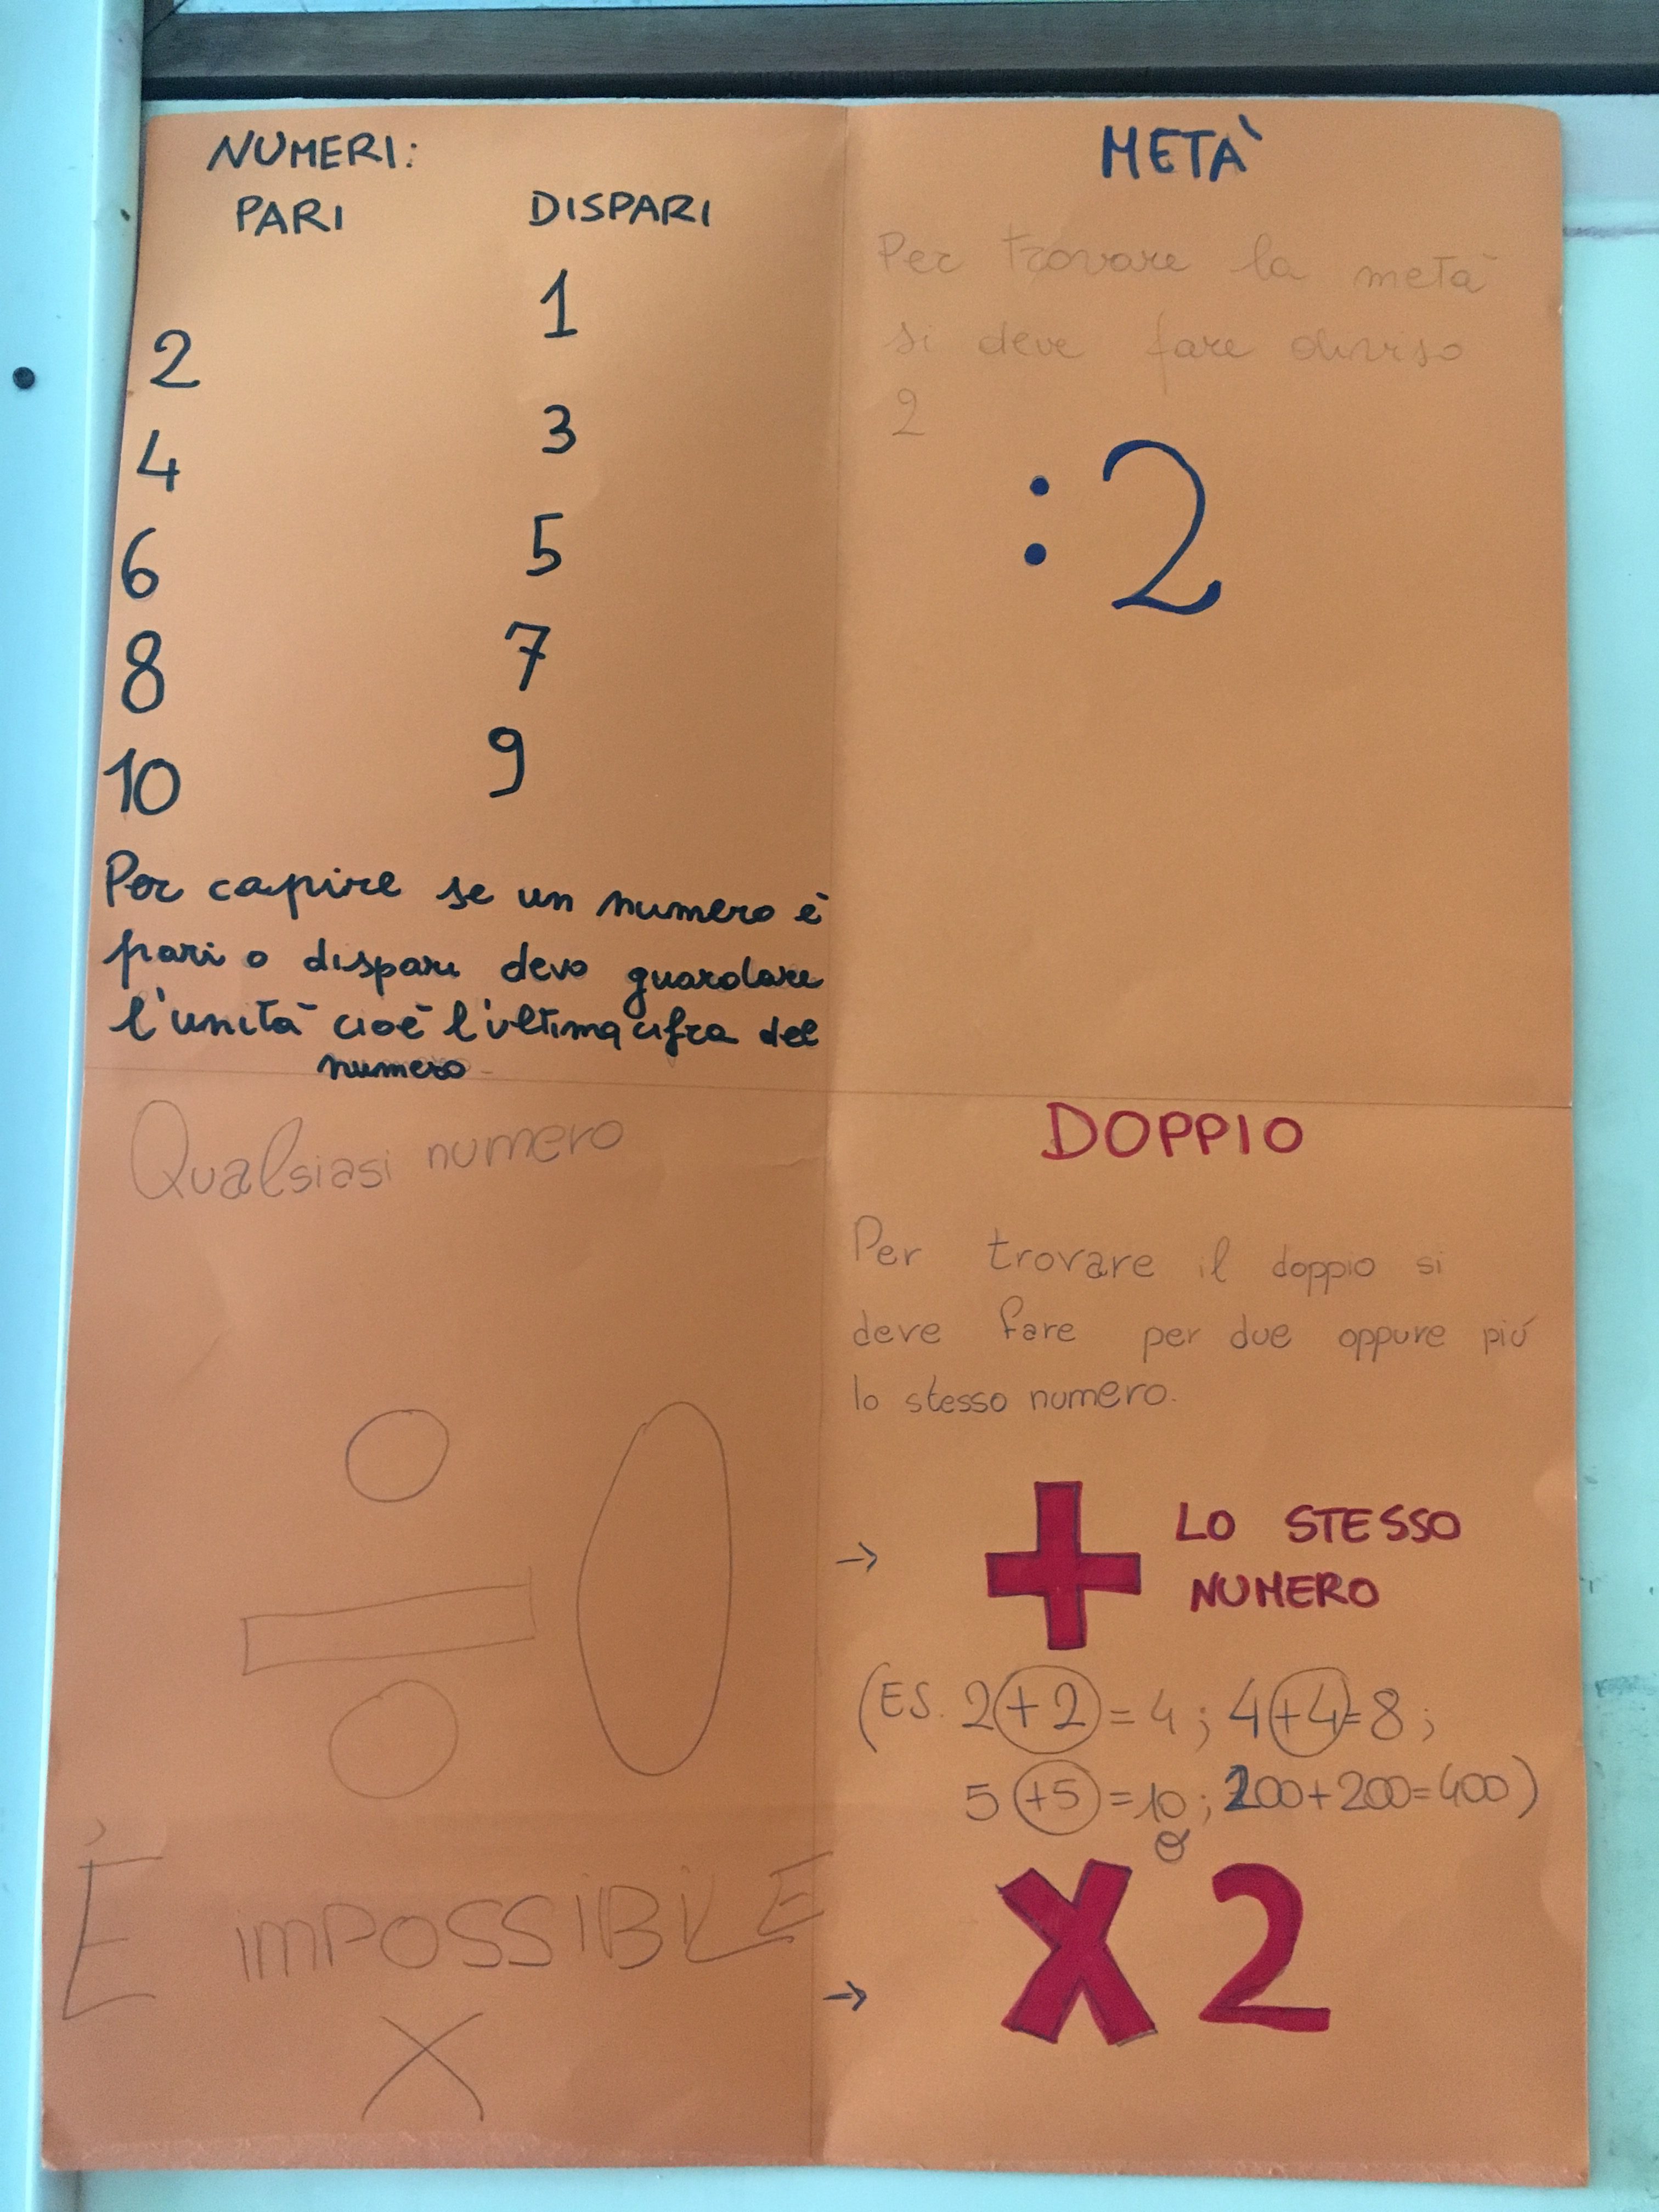 NUMERI:
PARI DISPARI
1
2
3
4
5
6
7
8
9
10
Per capire se un numero è
pari o dispari devo guardare
l'unità cioè l'ultima cifra del
numero
METÀ
Per trovare la metà
si deve fare diviso
2
:2
Qualsiasi numero
÷ 0
È imPOSSiBiLE
X
DOPPIO
Per trovare il doppio si
deve fare per due oppure piú
lo stesso numero.
→ + LO STESSO
NUMERO
(ES. 2+2=4; 4+4=8;
5+5=10; 200+200=400)
o
→ X2